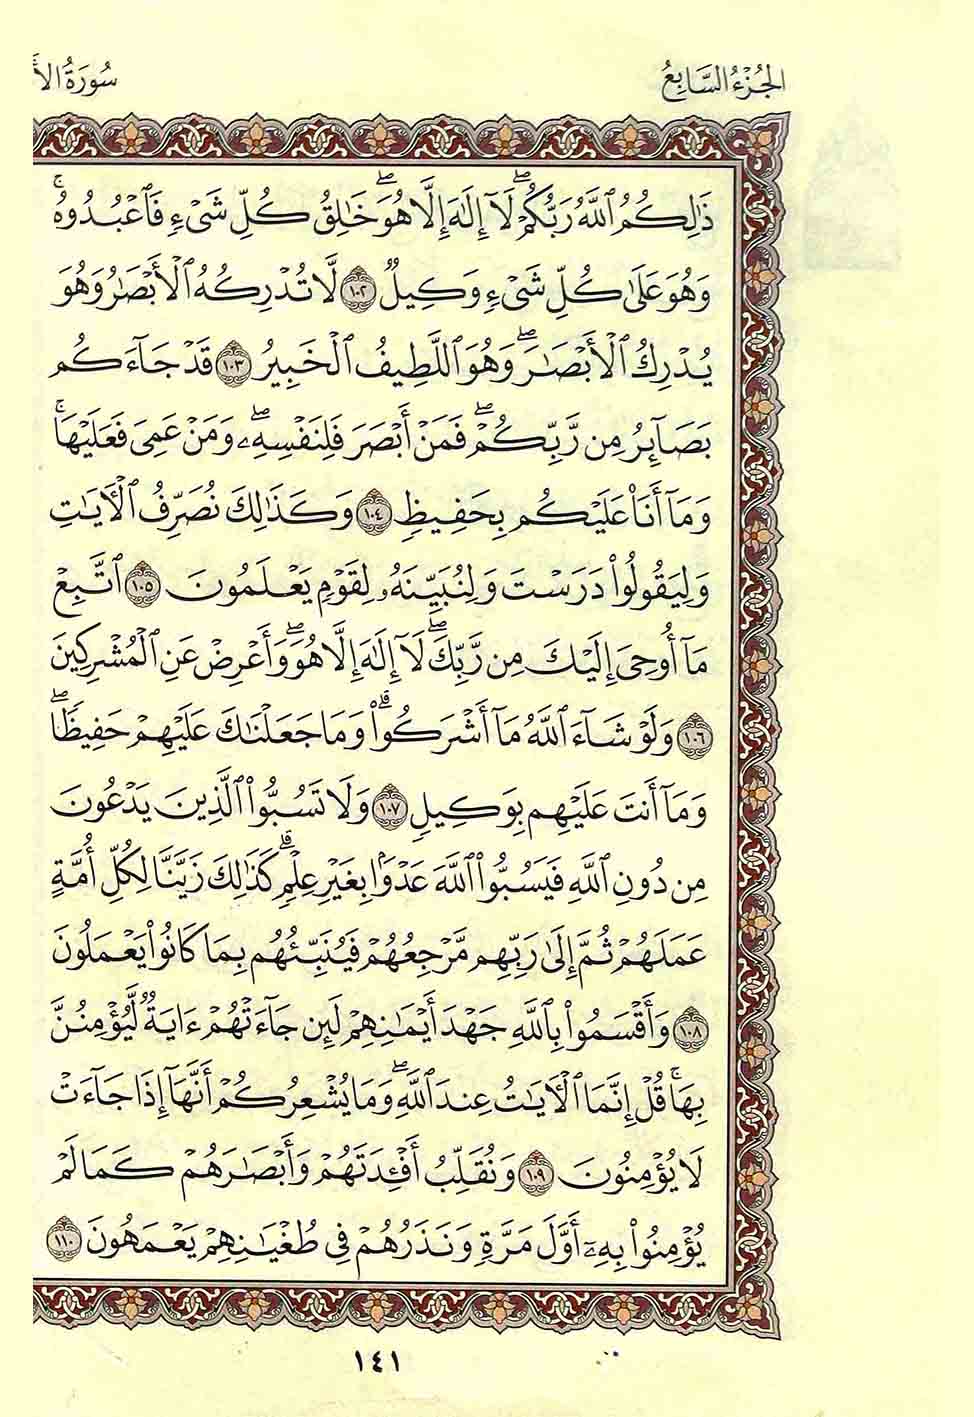 الجُزْءُ السَّابِعُ
سُورَةُ الأ
ذَٰلِكُمُ ٱللَّهُ رَبُّكُمْۖ لَآ إِلَٰهَ إِلَّا هُوَۖ خَٰلِقُ كُلِّ شَىْءٍ فَٱعْبُدُوهُۚ
وَهُوَ عَلَىٰ كُلِّ شَىْءٍ وَكِيلٌ ١٠٢ لَّا تُدْرِكُهُ ٱلْأَبْصَٰرُ وَهُوَ
يُدْرِكُ ٱلْأَبْصَٰرَۖ وَهُوَ ٱللَّطِيفُ ٱلْخَبِيرُ ١٠٣ قَدْ جَآءَكُم
بَصَآئِرُ مِن رَّبِّكُمْۖ فَمَنْ أَبْصَرَ فَلِنَفْسِهِۦۖ وَمَنْ عَمِىَ فَعَلَيْهَاۚ
وَمَآ أَنَا۠ عَلَيْكُم بِحَفِيظٍ ١٠٤ وَكَذَٰلِكَ نُصَرِّفُ ٱلْءَايَٰتِ
وَلِيَقُولُوا۟ دَرَسْتَ وَلِنُبَيِّنَهُۥ لِقَوْمٍ يَعْلَمُونَ ١٠٥ ٱتَّبِعْ
مَآ أُوحِىَ إِلَيْكَ مِن رَّبِّكَۖ لَآ إِلَٰهَ إِلَّا هُوَۖ وَأَعْرِضْ عَنِ ٱلْمُشْرِكِينَ
١٠٦ وَلَوْ شَآءَ ٱللَّهُ مَآ أَشْرَكُوا۟ۗ وَمَا جَعَلْنَٰكَ عَلَيْهِمْ حَفِيظًاۖ
وَمَآ أَنتَ عَلَيْهِم بِوَكِيلٍ ١٠٧ وَلَا تَسُبُّوا۟ ٱلَّذِينَ يَدْعُونَ
مِن دُونِ ٱللَّهِ فَيَسُبُّوا۟ ٱللَّهَ عَدْوًۢا بِغَيْرِ عِلْمٍۗ كَذَٰلِكَ زَيَّنَّا لِكُلِّ أُمَّةٍ
عَمَلَهُمْ ثُمَّ إِلَىٰ رَبِّهِم مَّرْجِعُهُمْ فَيُنَبِّئُهُم بِمَا كَانُوا۟ يَعْمَلُونَ
١٠٨ وَأَقْسَمُوا۟ بِٱللَّهِ جَهْدَ أَيْمَٰنِهِمْ لَئِن جَآءَتْهُمْ ءَايَةٌ لَّيُؤْمِنُنَّ
بِهَاۚ قُلْ إِنَّمَا ٱلْءَايَٰتُ عِندَ ٱللَّهِۖ وَمَا يُشْعِرُكُمْ أَنَّهَآ إِذَا جَآءَتْ
لَا يُؤْمِنُونَ ١٠٩ وَنُقَلِّبُ أَفْـِٔدَتَهُمْ وَأَبْصَٰرَهُمْ كَمَا لَمْ
يُؤْمِنُوا۟ بِهِۦٓ أَوَّلَ مَرَّةٍ وَنَذَرُهُمْ فِى طُغْيَٰنِهِمْ يَعْمَهُونَ ١١٠
١٤١